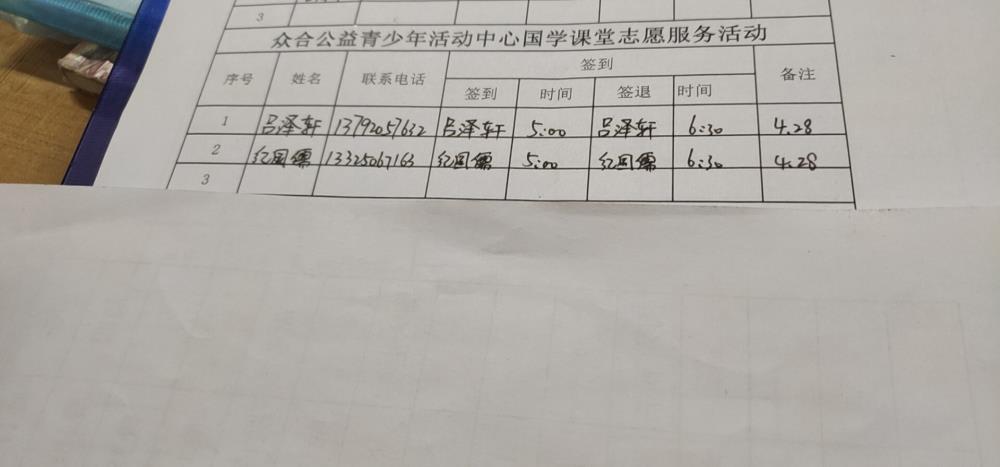 3
众合公益青少年活动中心国学课堂志愿服务活动
序号 姓名 联系电话 签到 备注
签到 时间 签退 时间
1 吕泽轩 13792057632 吕泽轩 5:00 吕泽轩 6:30 4.28
2 纪国儒 13325067163 纪国儒 5:00 纪国儒 6:30 4.28
3